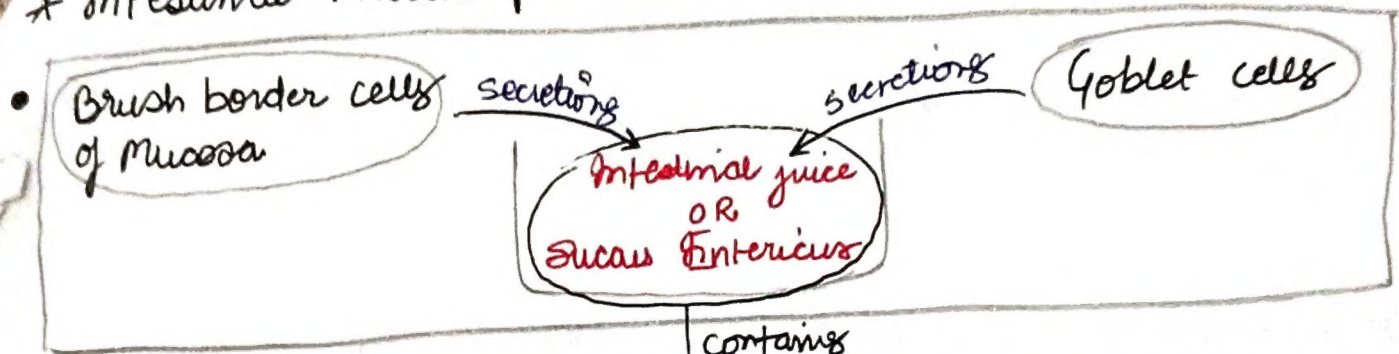 * Intestinal
• Brush border cells
of Mucosa
secretions
secretions
Goblet cells
Intestinal juice
OR
Succus Entericus
contains